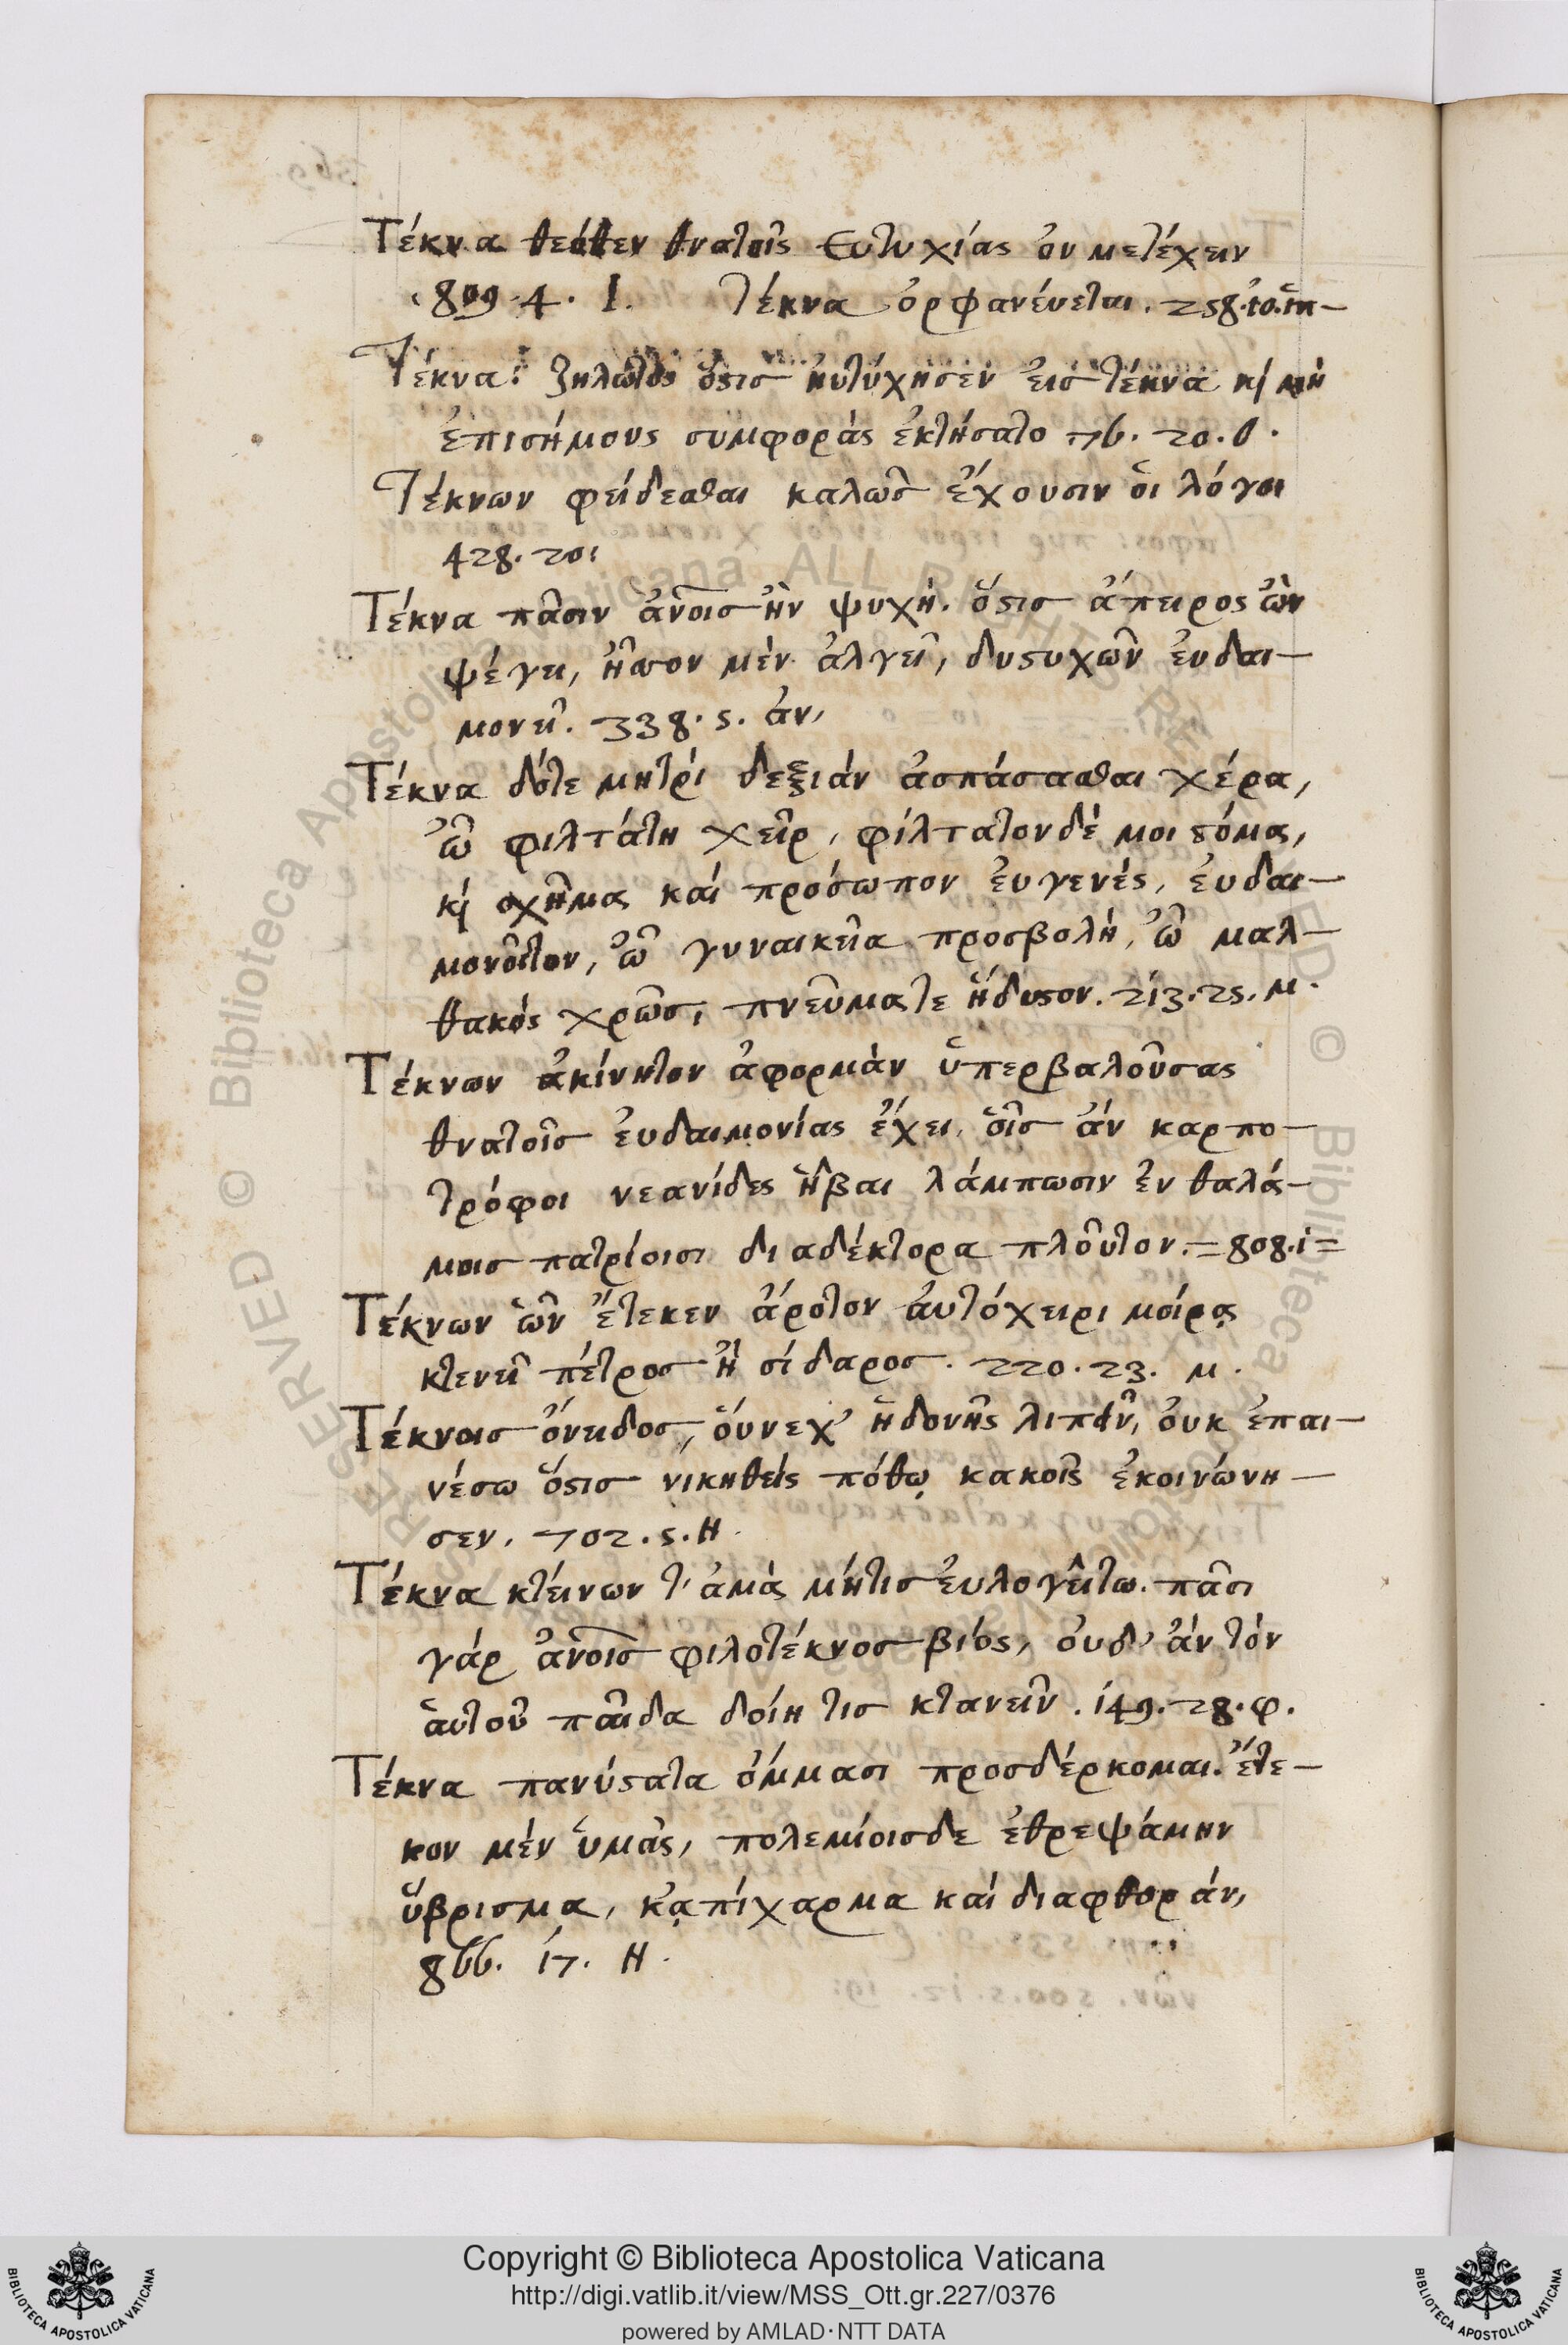 Τέκνα θεόθεν θνατοῖς Ευτυχίας ὀν μετέχειν
809. 4. Ι. τέκνα ὀρφανέυεται. 258. το. ἱπ—
Τέκνα: ζηλωτὸς ὅςις ἠυτύχησεν ἐις τέκνα κ μὴ
ἐπισήμους συμφοράς ἐκτήσατο 76. 20. ο.
Τέκνων φείδεσθαι καλῶς ἔχουσιν ὁι λόγοι
428. 20:
Τέκνα πᾶσιν ἀν̅οις ἦν ψυχή. ὅςις ἄπειρος ὢν
ψέγει, ἧσσον μὲν ἀλγεῖ, δυςυχῶν ἐυδαι—
μονεῖ. 338. 5. ἀν,
Τέκνα δότε μητρί δεξιάν ἀσπάσασθαι χέρα,
ὦ φιλτάτη χεῖρ, φίλτατον δέ μοι ςόμα,
κ σχῆμα καί πρόσωπον ἐυγενές, ἐυδαι—
μονοῖτον, ὦ γυναικεῖα προσβολή, ὦ μαλ—
θακός χρῶς, πνεῦμα τε ἥδυςον. 213. 25. Μ.
Τέκνων ἀκίνητον ἀφορμὰν ὑπερβαλοῦσας
θνατοῖς ἐυδαιμονίας ἔχει, ὁῖς ἄν καρπο—
τρόφοι νεανίδες ἧβαι λάμπωσιν ἐν θαλά—
μοις πατρίοισι διαδέκτορα πλοῦτον. = 808. ι =
Τέκνων ὧν ἔτεκεν ἄροτον ἀυτόχειρι μοίρᾳ
κτενεῖ πέτρος ἢ σίδαρος. 220. 23. Μ.
Τέκνοις ὄνειδος, ὅυνεχ' ἡδονῆς λιπεῖν, ὀυκ ἐπαι—
νέσω ὅςις νικηθείς πόθῳ κακοῖς ἐκοινώνη—
σεν. 702. 5. Η.
Τέκνα κτείνων τ' ἀμὰ μήτις ἐυλογεῖτω. πᾶσι
γάρ ἀν̅οις φιλοτέκνος βίος, ὀυδ' ἄν τόν
ἁυτοῦ παῖδα δοίη τις κτανεῖν. 149. 28. φ.
Τέκνα πανύςατα ὄμμασι προσδέρκομαι. ἔτε—
κον μέν ὑμᾶς, πολεμίοις δε ἐθρεψάμην
ὕβρισμα, κᾀπίχαρμα καί διαφθοράν,
866. 17. Η.
Copyright © Biblioteca Apostolica Vaticana
http://digi.vatlib.it/view/MSS_Ott.gr.227/0376
powered by AMLAD·NTT DATA